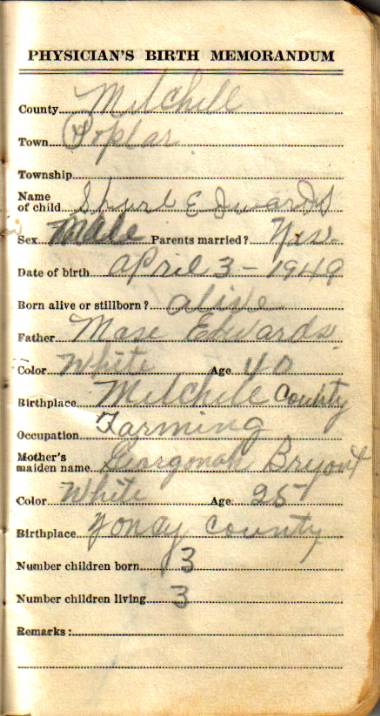 PHYSICIAN'S BIRTH MEMORANDUM
County Mitchell
Town Poplar
Township
Name
of child Edwards
Sex Male Parents married? Yes
Date of birth April 3 - 1949
Born alive or stillborn? alive
Father Mase Edwards
Color White Age 40
Birthplace Mitchell County
Occupation Farming
Mother's
maiden name Bryont
Color White Age 25
Birthplace Yancy County
Number children born 3
Number children living 3
Remarks: